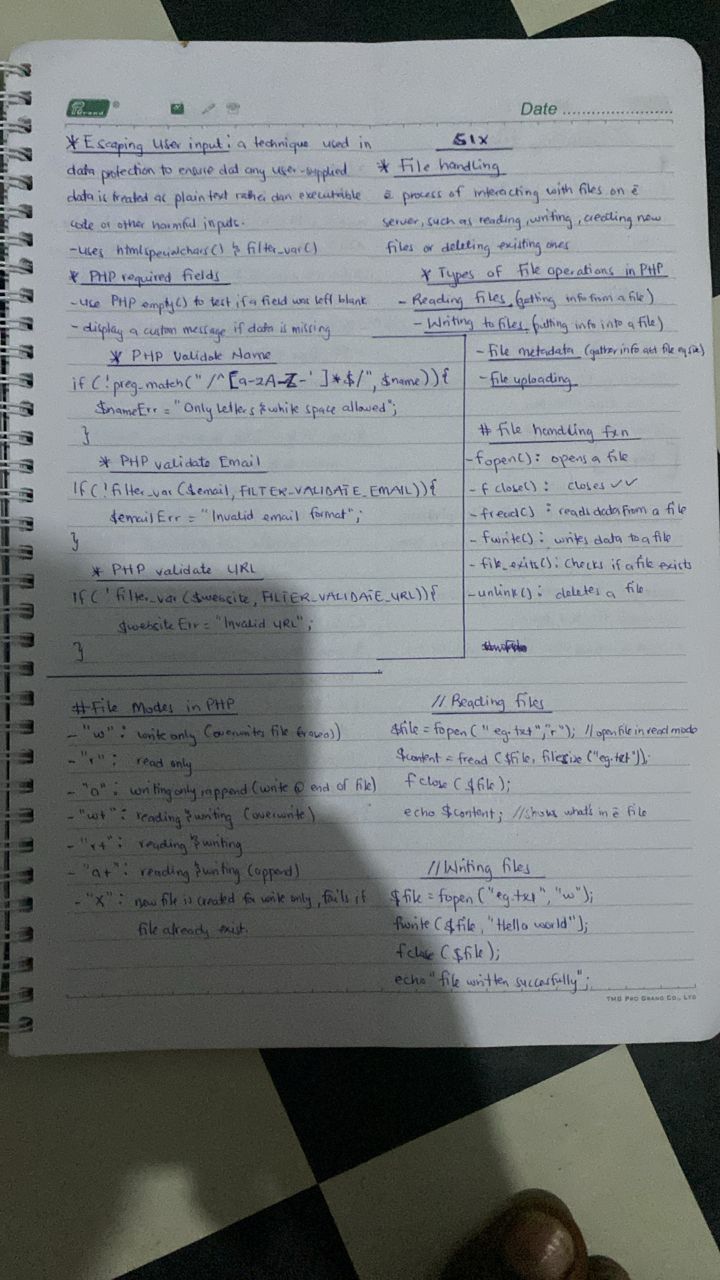 Grand
Date
* Escaping User input: a technique used in
data protection to ensure dat any user-supplied
data is treated as plain text rather dan executable
code or other harmful inputs.
- uses htmlspecialchars() & filter_var()
* PHP required fields
- use PHP empty() to test if a field was left blank
- display a custom message if data is missing
* PHP Validate Name
if (!preg_match("/^[a-zA-Z-' ]*$/", $name)){
$nameErr = "Only letters & white space allowed";
}
* PHP validate Email
If (!filter_var ($email, FILTER_VALIDATE_EMAIL)){
$emailErr = "Invalid email format";
}
* PHP validate URL
If (!filter_var ($website, FILTER_VALIDATE_URL)){
$websiteErr = "Invalid URL";
}
SIX
* File handling
ē process of interacting with files on ē
server, such as reading, writing, creating new
files or deleting existing ones
* Types of File operations in PHP
- Reading files (getting info from a file)
- Writing to files (putting info into a file)
- file metadata (gather info abt file eg size)
- file uploading
# file handling fxn
- fopen(): opens a file
- fclose(): closes ✓✓
- fread(): reads data from a file
- fwrite(): writes data to a file
- file_exits(): checks if a file exists
- unlink(): deletes a file
# File Modes in PHP
- "w": write only (overwrites file)
- "r": read only
- "a": writing only, append (write @ end of file)
- "w+": reading & writing (overwrite)
- "r+": reading & writing
- "a+": reading & writing (append)
- "x": new file is created for write only, fails if
file already exist.
// Reading files
$file = fopen("eg.txt","r"); // open file in read mode
$content = fread ($file, filesize ("eg.txt"));
fclose ($file);
echo $content; // shows what's in ē file
// Writing files
$file = fopen ("eg.txt", "w");
fwrite ($file, "Hello world");
fclose ($file);
echo "file written succesfully";
TMB PRO GRAND CO., LTD